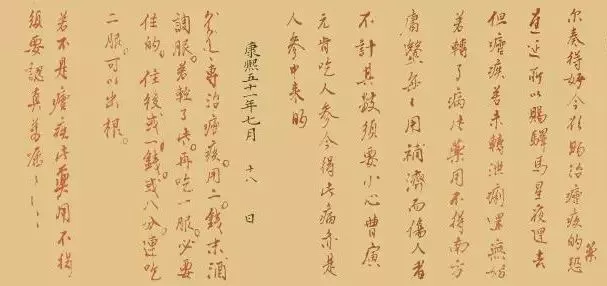 尔奏得好今欲賜治瘧疾的藥恐
遲延所以賜驛馬星夜趕去
但瘧疾若未轉泄痢還無妨
若轉了病此藥用不得南方
庸醫每々用補濟而傷人者
不計其數須要小心曹寅
元肯吃人參今得此病亦是
人參中來的
康熙五十一年七月 十八 日
專治瘧疾用二錢末酒
調服。若輕了些。再吃一服。必要
住的。住後或一錢。或八分。連吃
二服。可以出根。
若不是瘧疾此藥用不得
須要認真萬囑